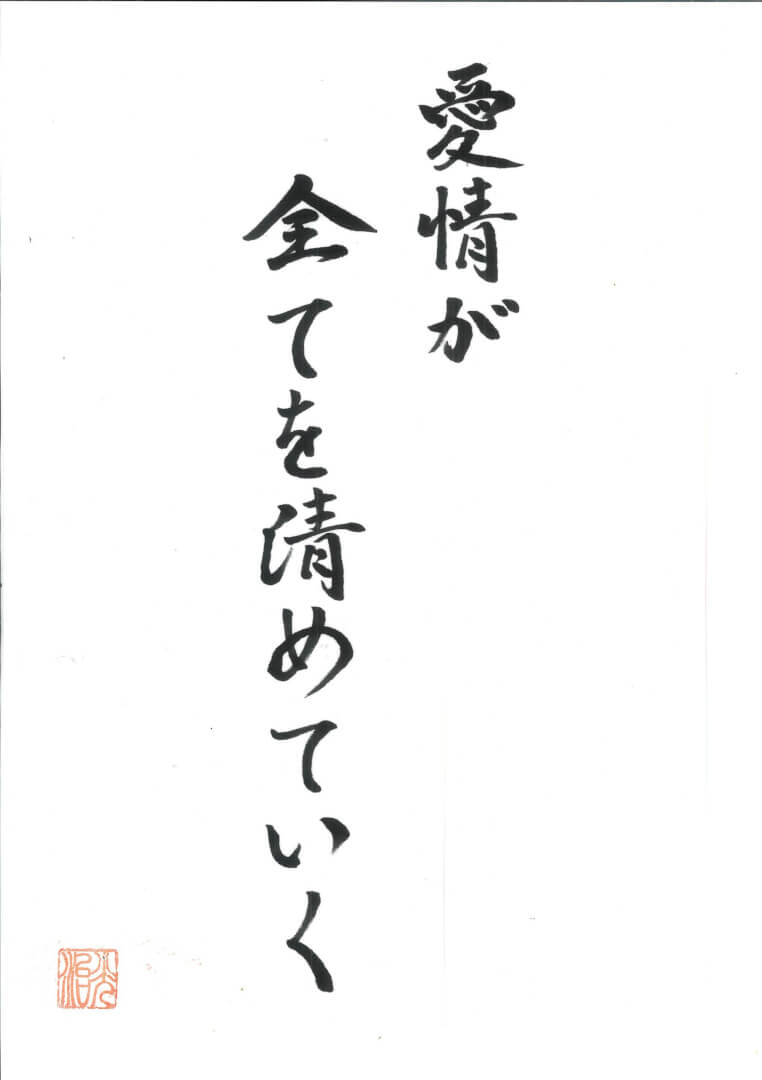 愛情が
全てを清めていく